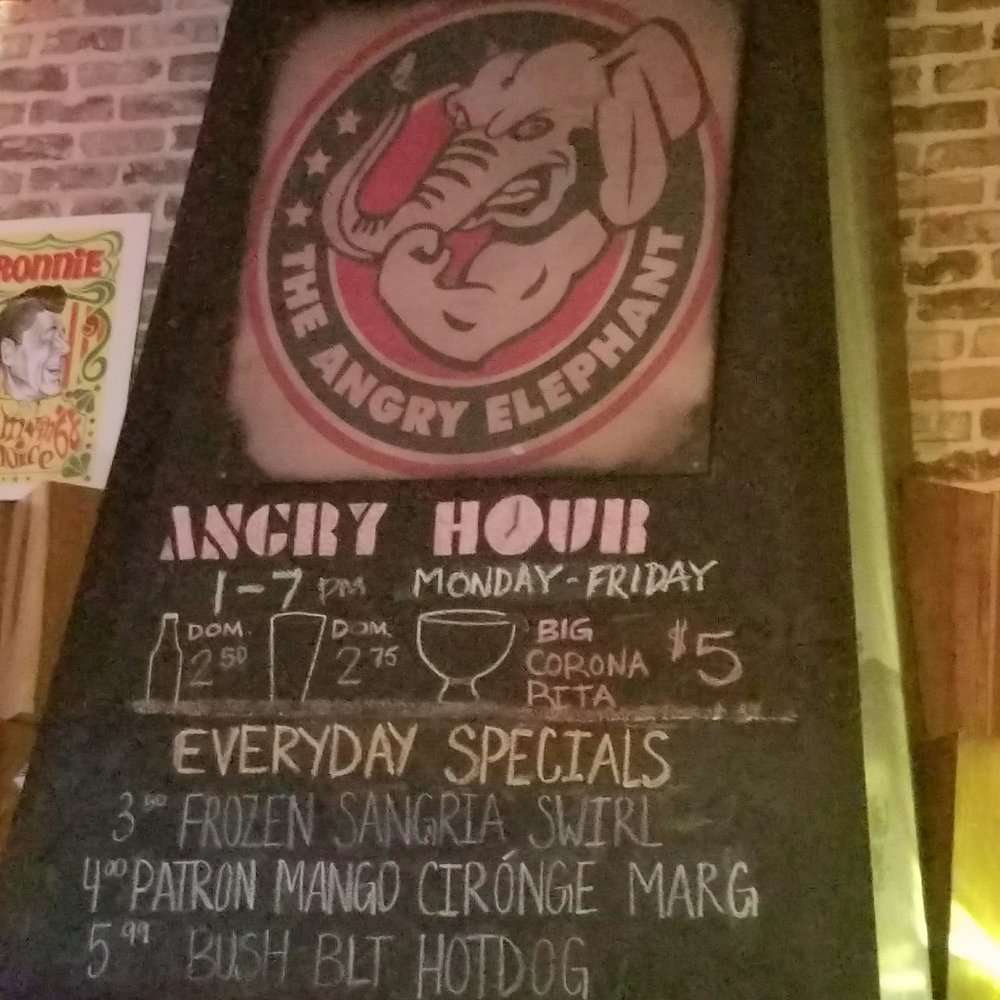 THE ANGRY ELEPHANT
RONNIE
ANGRY HOUR
1-7 PM MONDAY-FRIDAY
DOM. 2.50 DOM. 2.75 BIG CORONA RITA $5
EVERYDAY SPECIALS
3.50 FROZEN SANGRIA SWIRL
4.00 PATRON MANGO CIRÓNGE MARG
5.99 BUSH BLT HOTDOG